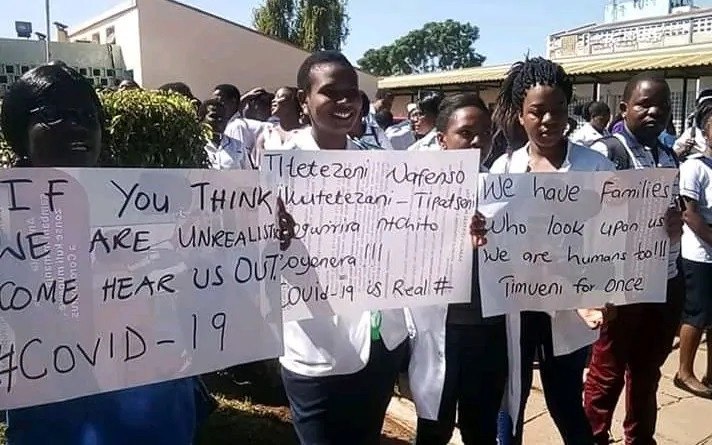 If you THINK
WE ARE UNREALISTIC
COME HEAR US OUT,
#COVID-19
TItetezeni Nafenso
Tikutetezeni - Tipatseni
ntchito
zoyenera!!!
Covid-19 is Real #
We have Families
who look upon us
We are humans too!!!
Timveni for once